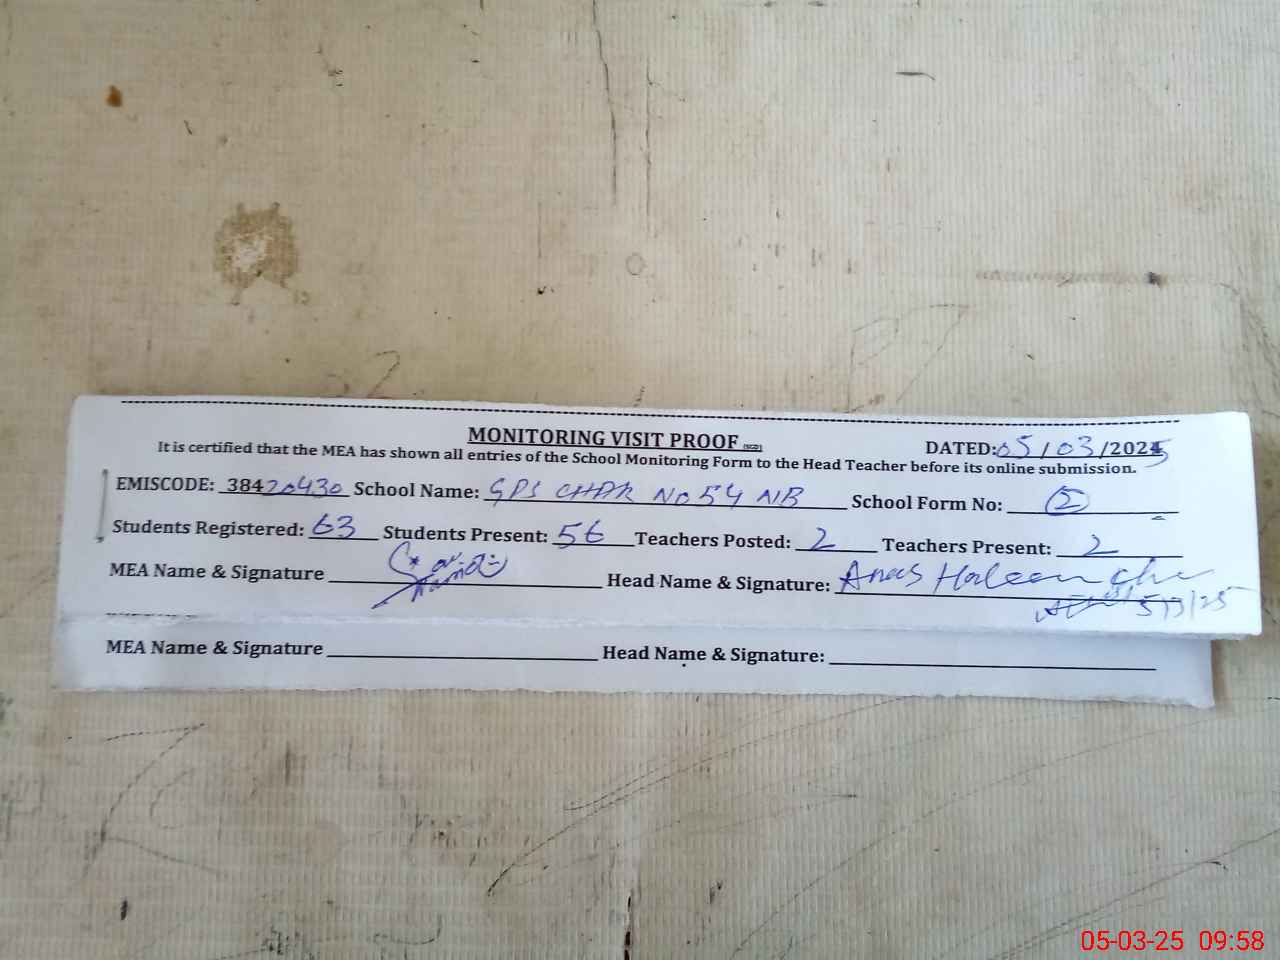 MONITORING VISIT PROOF (SGD)
DATED: 05/03/2025
It is certified that the MEA has shown all entries of the School Monitoring Form to the Head Teacher before its online submission.
EMISCODE: 38420430 School Name: GPS CHAK No 54 NB School Form No: 2
Students Registered: 63 Students Present: 56 Teachers Posted: 2 Teachers Present: 2
MEA Name & Signature Head Name & Signature: Anas Haleem
5/3/25
MEA Name & Signature Head Name & Signature:
05-03-25 09:58